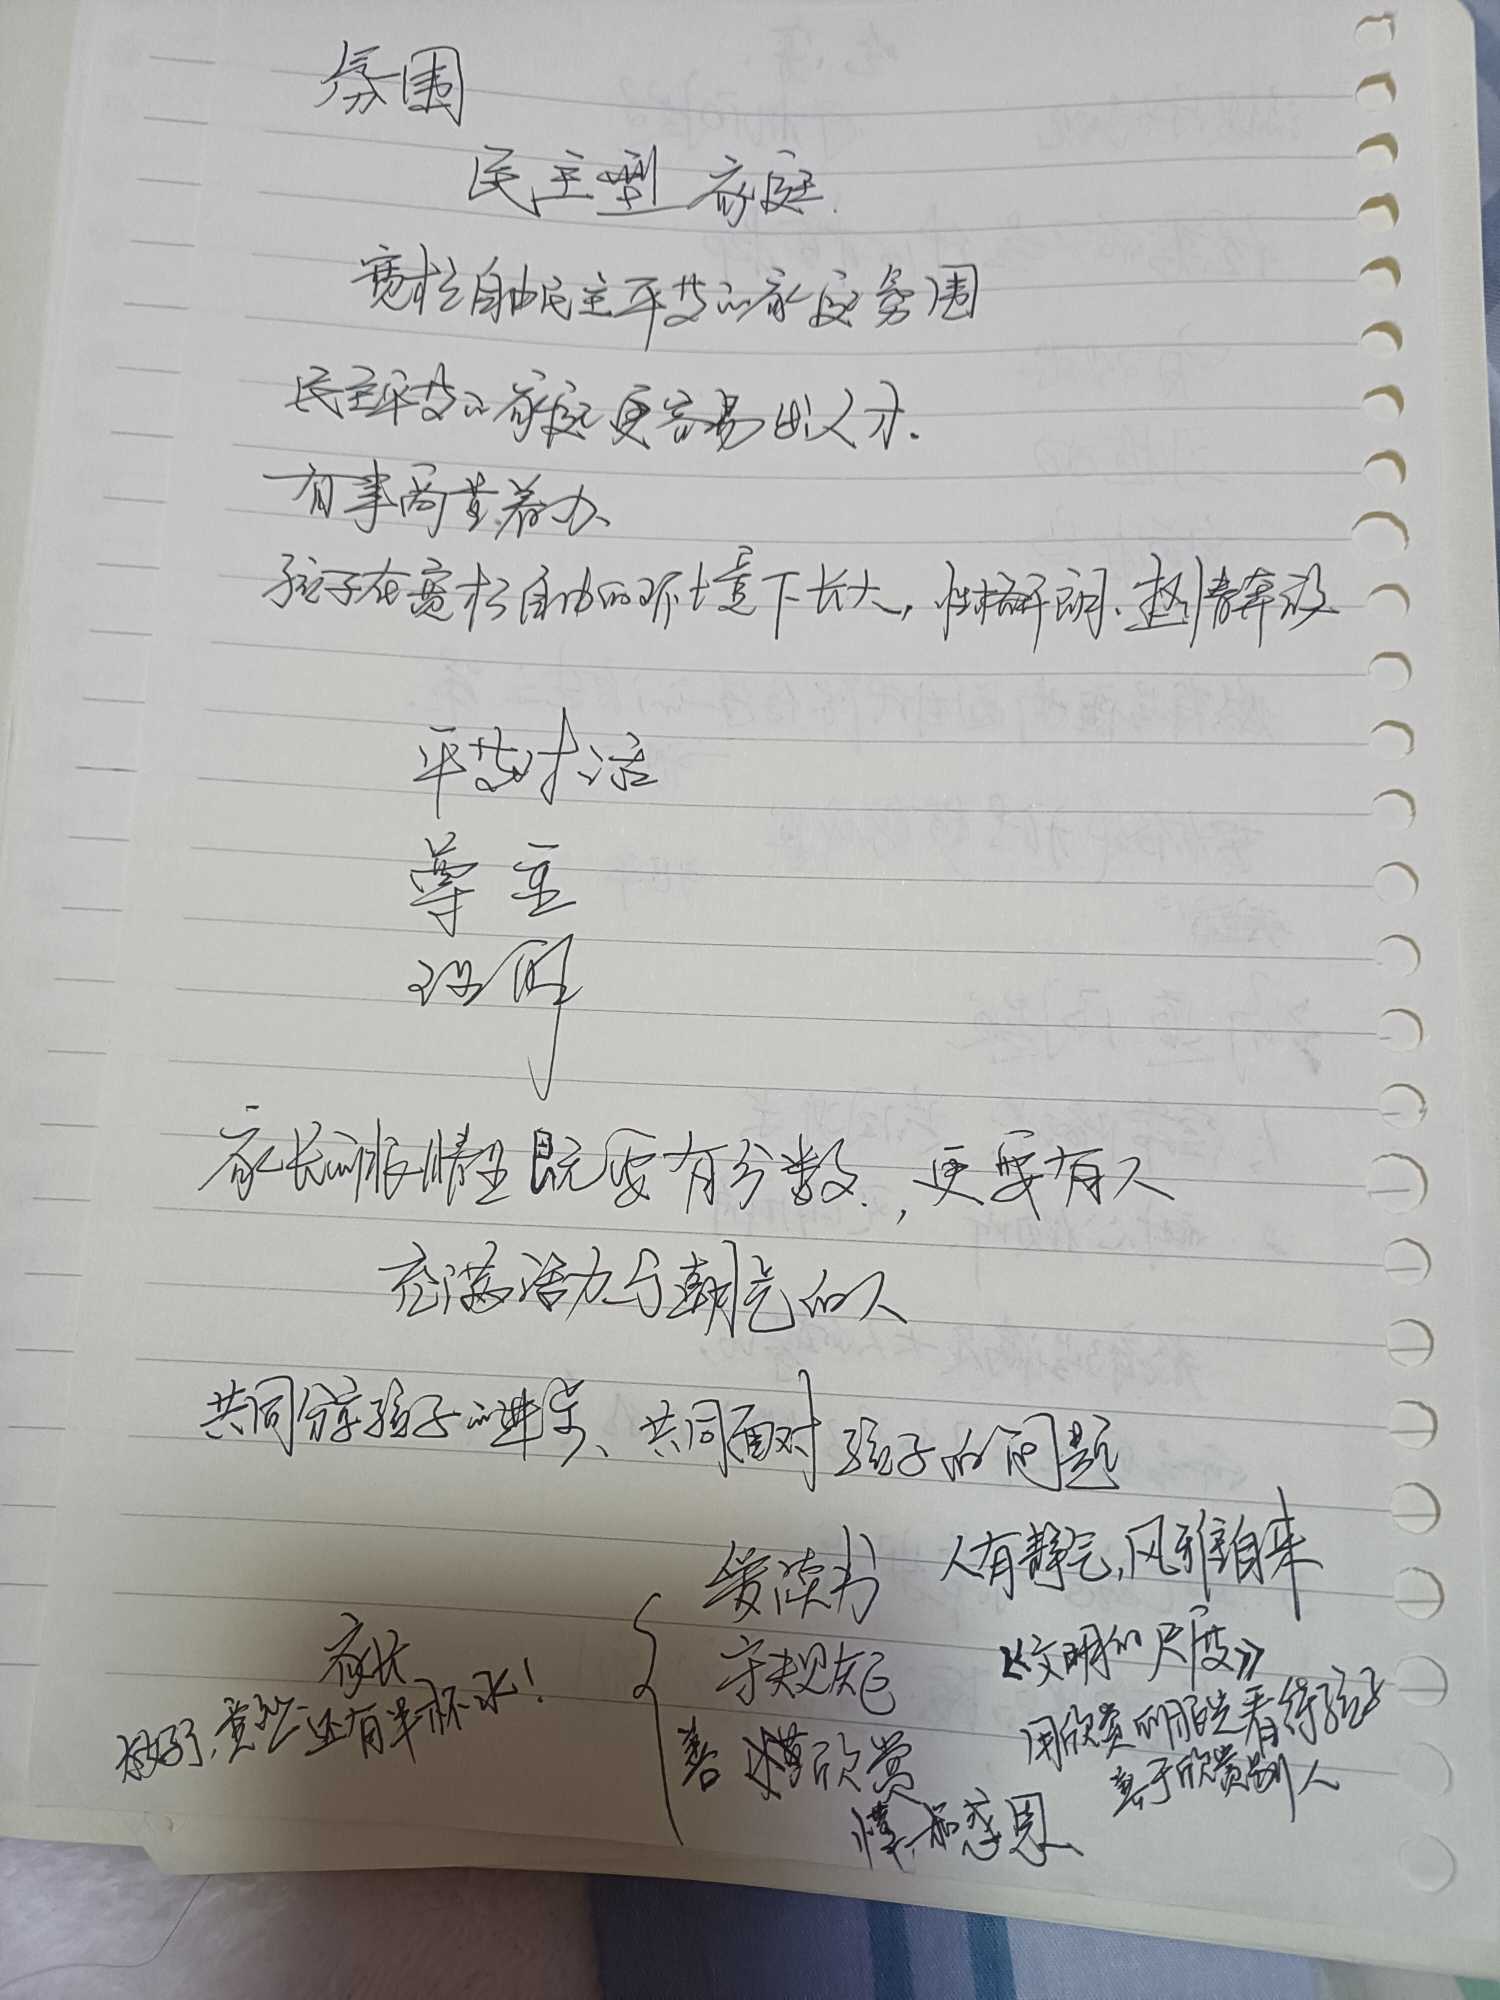 氛围
民主型家庭
宽松自由民主平等的家庭氛围
民主平等的家庭更容易出人才.
有事商量着办
孩子在宽松自由的环境下长大,性格开朗、热情奔放
平等对话
尊重
理解
家长的表情里既要有分数,更要有人
充满活力与朝气的人
共同分享孩子的进步、共同面对孩子的问题
爱读书 人有静气,风雅自来
家长 守规矩 《文明的尺度》
太好了,竟然还有半杯水!
善 欣赏 用欣赏的眼光看待孩子
善于欣赏别人
懂 感恩